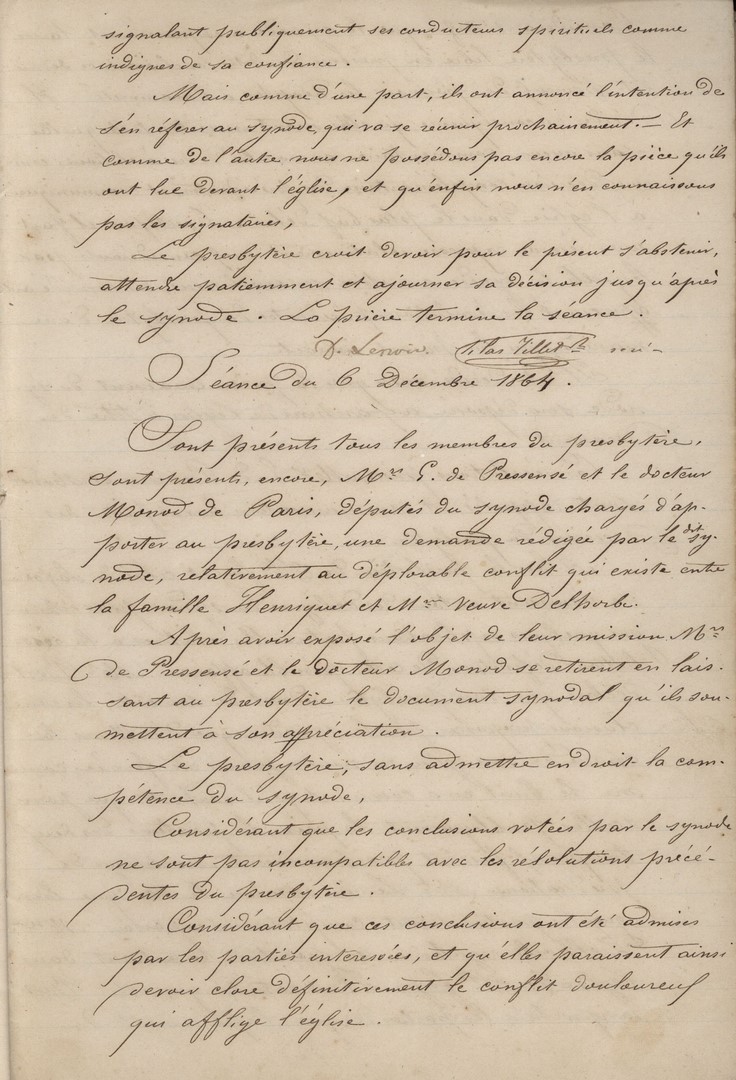 signalant publiquement ses conducteurs spirituels comme
indignes de sa confiance.
Mais comme d'une part, ils ont annoncé l'intention de
s'en référer au synode, qui va se réunir prochainement. — Et
comme de l'autre nous ne possédons pas encore la pièce qu'ils
ont lue devant l'église, et qu'enfin nous n'en connaissons
pas les signataires,
Le presbytère croit devoir pour le présent s'abstenir,
attendre patiemment et ajourner sa décision jusqu'après
le synode. La prière termine la séance.
D. Lenoir. Silas Tillet
Séance du 6 Décembre 1864.
Sont présents tous les membres du presbytère,
sont présents, encore, Mrs E. de Pressensé et le docteur
Monod de Paris, députés du synode chargés d'ap-
porter au presbytère, une demande rédigée par le dit sy-
node, relativement au déplorable conflit qui existe entre
la famille Henriquet et Me Veuve Delhorbe.
Après avoir exposé l'objet de leur mission Mrs
de Pressensé et le docteur Monod se retirent en lais-
sant au presbytère le document synodal qu'ils sou-
mettent à son appréciation.
Le presbytère, sans admettre en droit la com-
pétence du synode,
Considérant que les conclusions votées par le synode
ne sont pas incompatibles avec les résolutions précé-
dentes du presbytère.
Considérant que ces conclusions ont été admises
par les parties interessées, et qu'elles paraissent ainsi
devoir clore définitivement le conflit douloureux
qui afflige l'église.